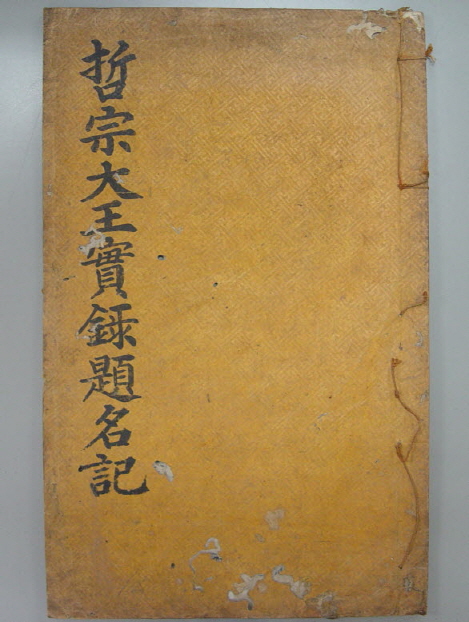 哲宗大王實録題名記